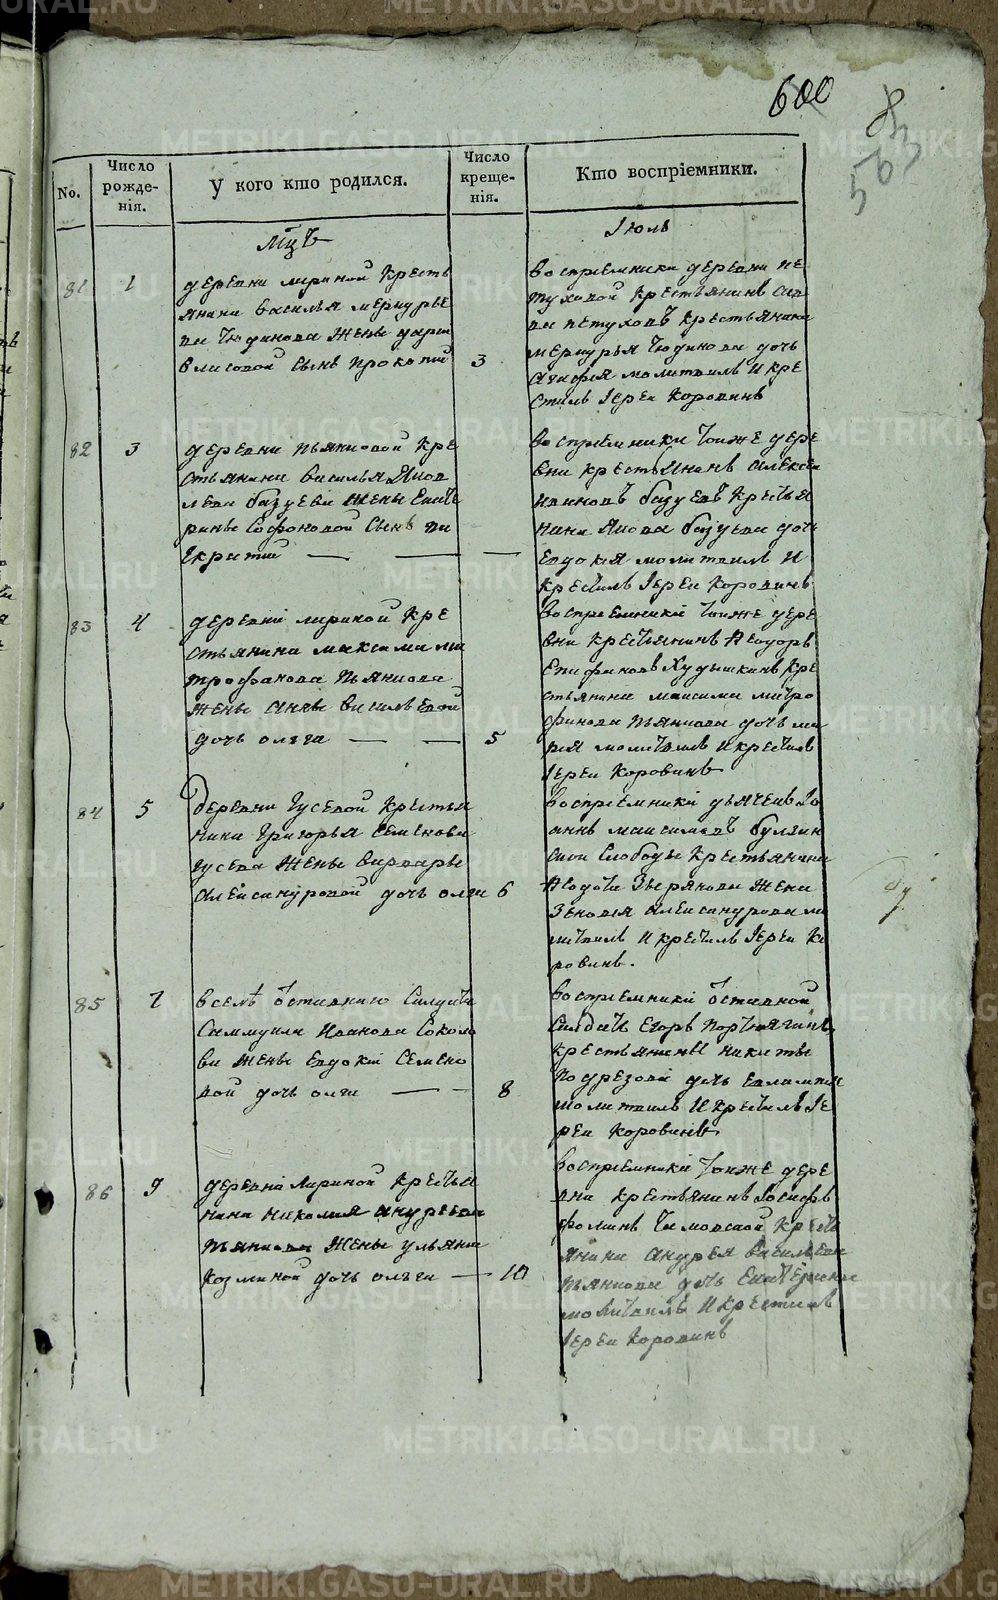 600
563
No.
Число рожде-нія.
У кого кто родился.
Число креще-нія.
Кто воспріемники.
Мцъ
Іюль
81
1
деревни лириной кресть
янина василья меркурье
ва Чюдинова жены дарьи
власовой сынъ прокопий
3
воспріемники деревни пе
туховой крестьянинъ сав
ва петуховъ крестьянина
меркурья Чюдинова дочь
агафія молитвилъ и кре
стилъ Іереи Коровинъ
82
3
деревни пьянковой кре
стьянина василья Яков
лева базуева жены Екате
рины Софоновой сынъ па
нкратий
воспріемники тоиже дере
вни крестьянинъ алексеи
ивановъ базуевъ крестья
нина Якова базуева дочь
Евдокія молитвилъ и
крестилъ Іереи Коровинъ
83
4
деревни лириной кре
стьянина максима ми
трофанова пьянкова
жены анны васильевой
дочь ольга
5
воспріемники тоиже дере
вни крестьянинъ Ѳеодоръ
Епифановъ Худышкинъ кре
стьянина максима митро
фанова пьянкова дочь ма
рія молитвилъ и крестилъ
Іереи Коровинъ
84
5
деревни гусевой крестья
нина григорья семенова
гусева жены варвары
александровой дочь олга
6
воспріемники дьячекъ Іо
аннъ максимовъ
слободы крестьянина
Ѳедота Зверякова жена
Зеновія александрова мо
литвилъ и крестилъ Іереи Ко
ровинъ.
85
7
в селѣ отставнаго салдата
Саммуила иванова Соколо
ва жены Евдокіи Семено
вой дочь олга
8
воспріемники отставной
Салдатъ Егоръ портнягинъ
крестьянины никиты
подрезова дочь евлампия
молитвилъ и крестилъ Іе
реи Коровинъ
86
9
деревни лириной крестья
нина николая андреева
пьянкова жены ульяны
козминой дочь ольга
10
воспріемники тоиже дере
вни крестьянинъ Іосифъ
фоминъ крестъ
янина андрея васильева
пьянкова дочь Екатерина
молитвилъ и крестилъ
Іереи Коровинъ
METRIKI.GASO-URAL.RU